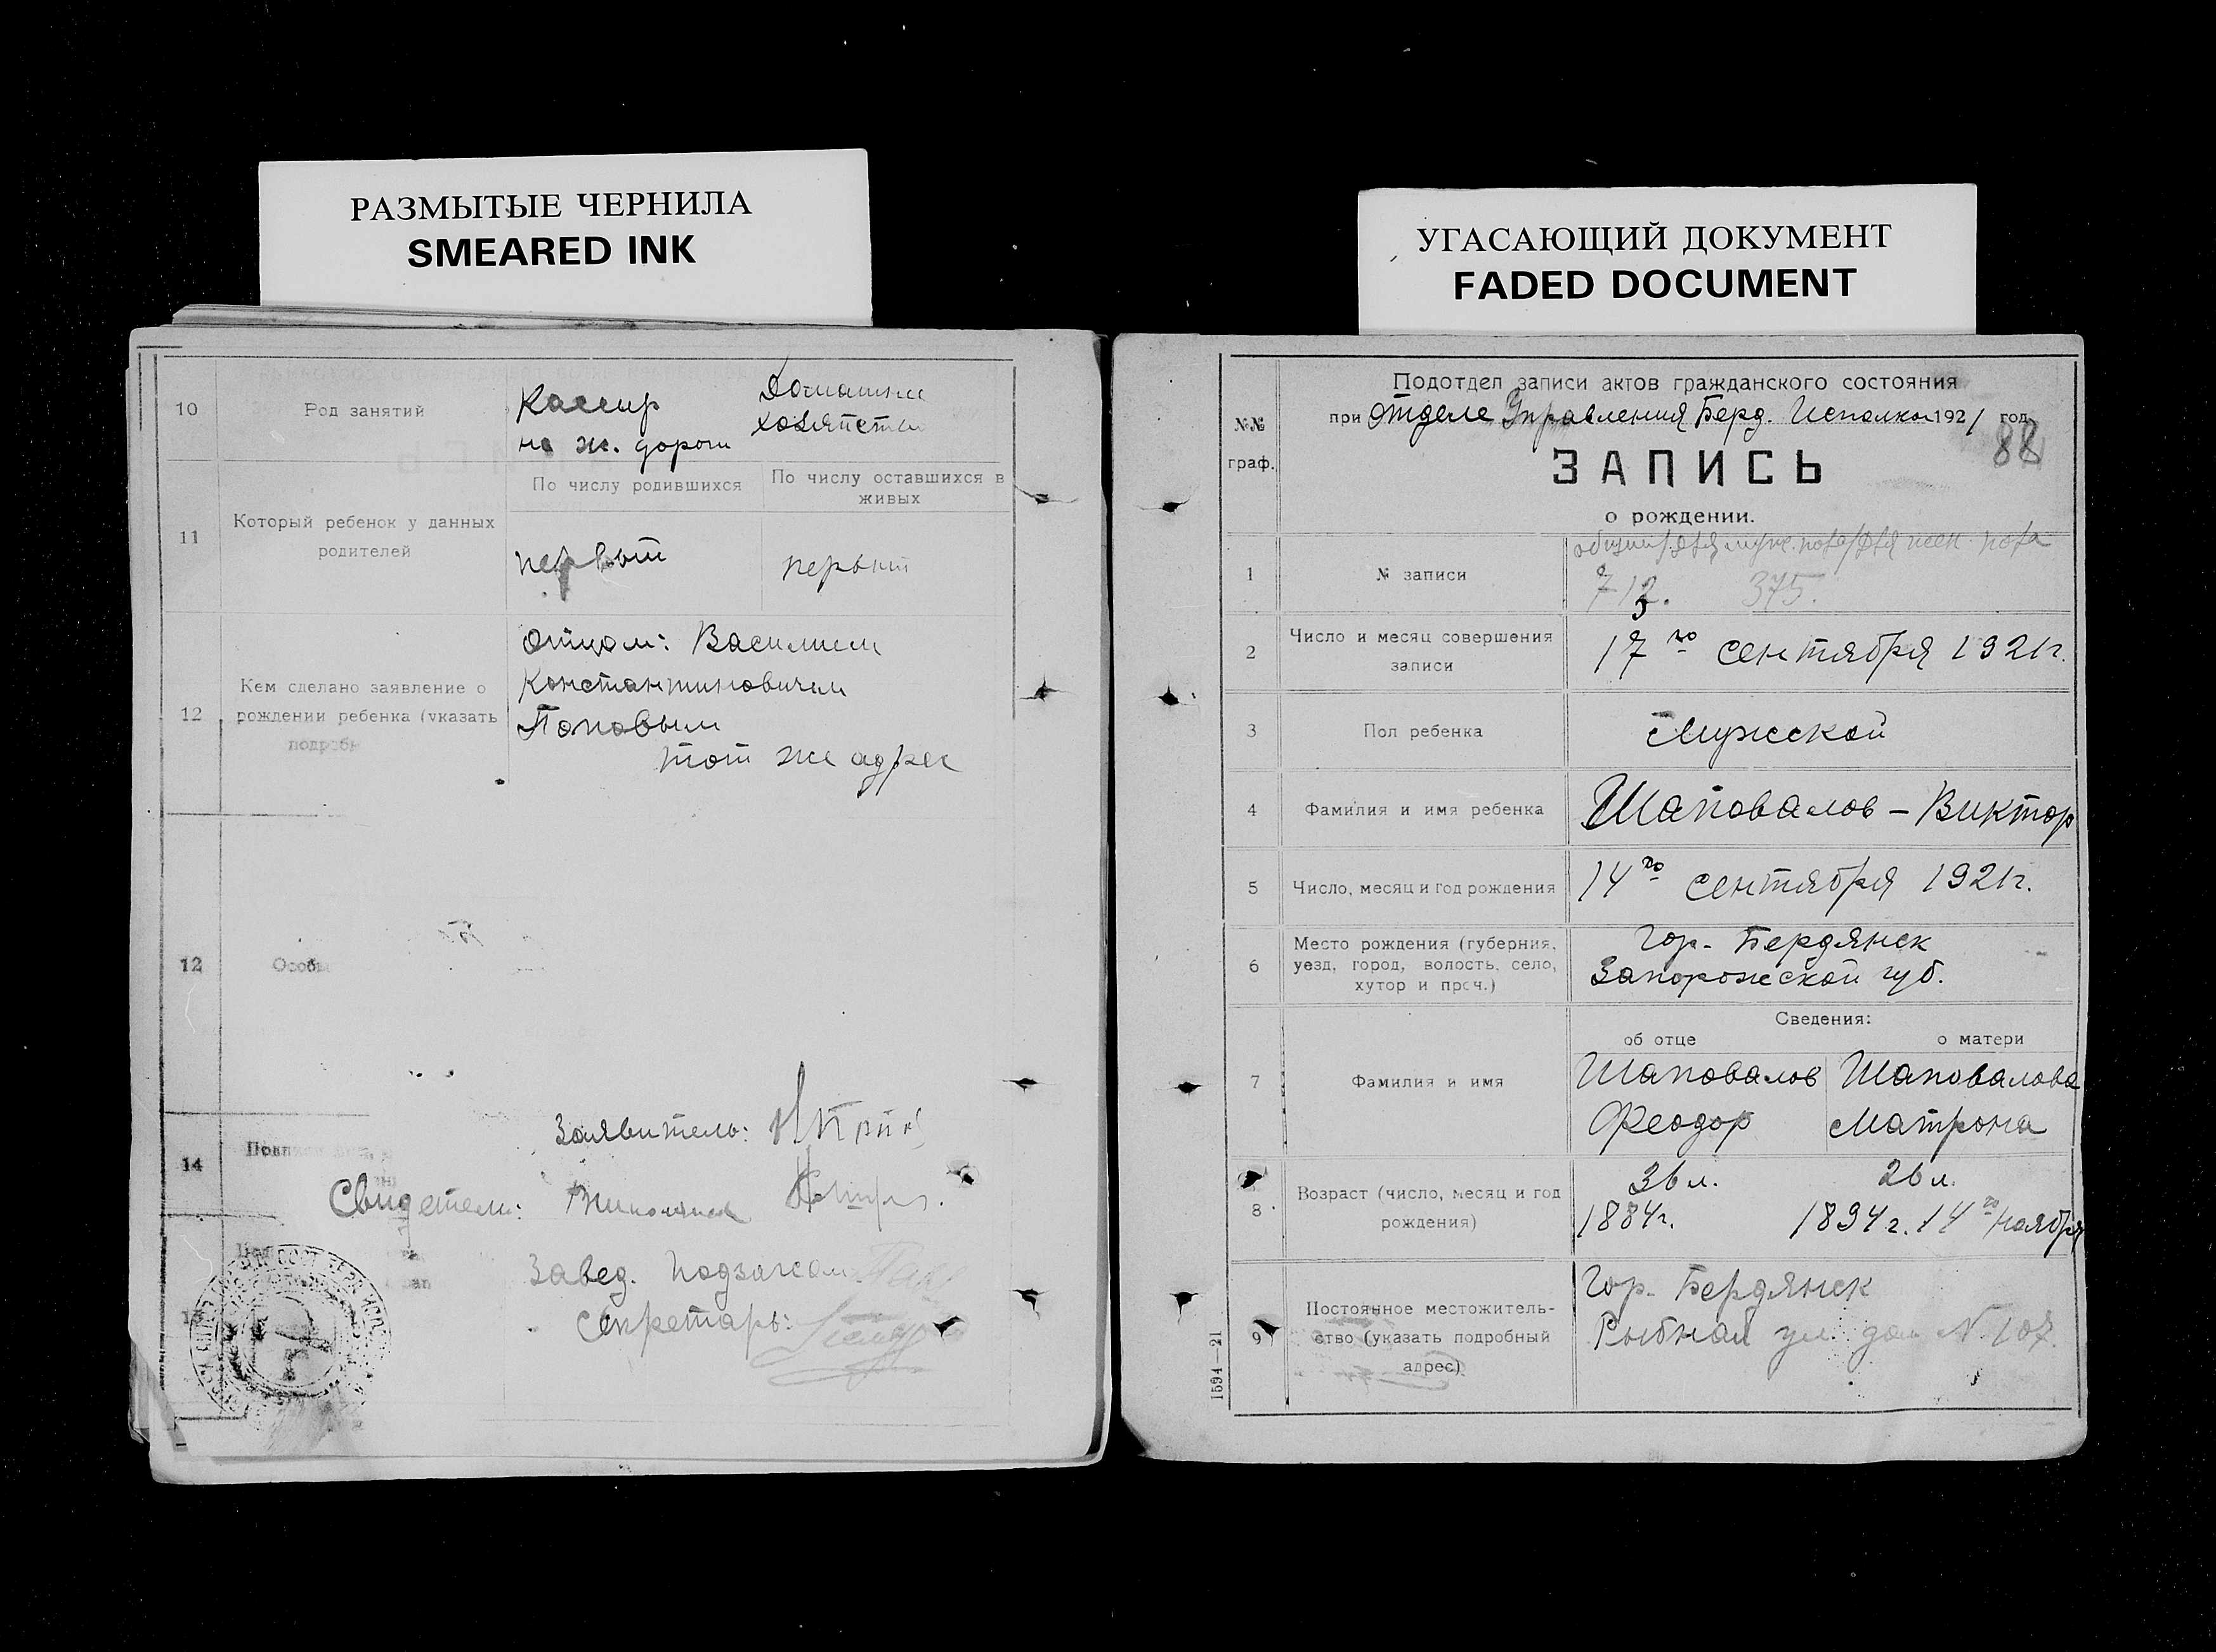 РАЗМЫТЫЕ ЧЕРНИЛА
SMEARED INK
10
Род занятий
Кассир
на ж. дороги
Домашнее
хозяйство
11
Который ребенок у данных
родителей
По числу родившихся
По числу оставшихся в
живых
первый
первый
12
Кем сделано заявление о
рождении ребенка (указать
подробн
Отцом: Василием
Константиновичем
Поповым
тот же адрес
12
Особы
14
Заявитель:
Свидетели:
Завед. Подзагсом
Секретарь:
УГАСАЮЩИЙ ДОКУМЕНТ
FADED DOCUMENT
№№
граф.
Подотдел записи актов гражданского состояния
при Отделе Управления Берд. Исполком 1921 год.
88
ЗАПИСЬ
о рождении.
1
№ записи
общий/для муж. пола/для жен. пола
712. 375.
2
Число и месяц совершения
записи
17го сентября 1921г.
3
Пол ребенка
Мужской
4
Фамилия и имя ребенка
Шаповалов - Виктор
5
Число, месяц и год рождения
14го сентября 1921г.
6
Место рождения (губерния,
уезд, город, волость, село,
хутор и проч.)
Гор. Бердянск
Запорожской губ.
Сведения:
об отце
о матери
7
Фамилия и имя
Шаповалов
Феодор
Шаповалова
Матрона
8
Возраст (число, месяц и год
рождения)
36 л.
1884г.
26 л.
1894г. 14го ноября
9
Постоянное местожитель-
ство (указать подробный
адрес)
Гор. Бердянск
Рыбная ул. дом № 107.
1594—21